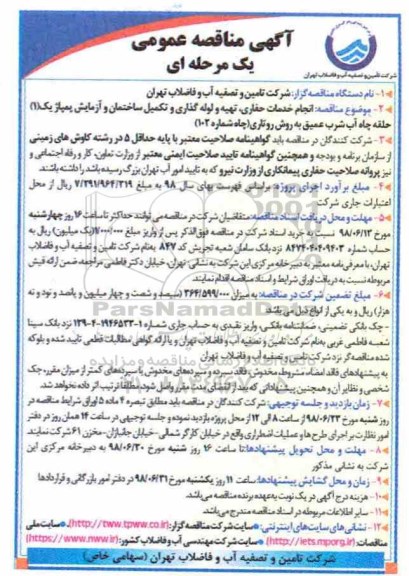 آگهی مناقصه عمومی
یک مرحله ای
شرکت تامین و تصفیه آب و فاضلاب تهران
۱- نام دستگاه مناقصه گزار: شرکت تامین و تصفیه آب و فاضلاب تهران
۲- موضوع مناقصه: انجام خدمات حفاری، تهیه و لوله گذاری و تکمیل ساختمان و آزمایش پمپاژ یک(۱)
حلقه چاه آب شرب عمیق به روش روتاری(چاه شماره ۱۰۲)
۳- شرکت کنندگان در مناقصه باید گواهینامه صلاحیت معتبر با پایه حداقل ۵ در رشته کاوش های زمینی
از سازمان برنامه و بودجه و همچنین گواهینامه تایید صلاحیت ایمنی معتبر از وزارت تعاون، کار و رفاه اجتماعی و
نیز پروانه صلاحیت حفاری پیمانکاری از وزارت نیرو که به تایید امور آب تهران بزرگ رسیده باشد را داشته باشند.
۴- مبلغ برآورد اجرای پروژه: براساس فهرست بهای سال ۹۸ به مبلغ ۷/۲۹۱/۹۶۴/۳۱۹ ریال از محل
اعتبارات جاری شرکت
۵- مهلت و محل دریافت اسناد مناقصه: متقاضیان شرکت در مناقصه می توانند حداکثر تا ساعت ۱۶ روز چهارشنبه
مورخ ۹۸/۰۶/۱۳ نسبت به خرید اسناد شرکت در مناقصه فوق الذکر پس از واریز مبلغ ۱/۰۰۰/۰۰۰(یک میلیون) ریال به
حساب شماره ۸۴۷۴۰۴۰۴۰۹۴۰۳ نزد بانک سامان شعبه تجریش کد ۸۴۷ به نام شرکت تامین و تصفیه آب و فاضلاب
تهران، با معرفی نامه معتبر به دبیرخانه مرکزی این شرکت به نشانی تهران، خیابان دکتر فاطمی مراجعه، ضمن ارائه فیش
مربوطه نسبت به دریافت اوراق شرایط و اسناد مناقصه اقدام نمایند.
۶- مبلغ تضمین شرکت در مناقصه: به میزان ۳۶۴/۵۹۹/۰۰۰ (سیصد و شصت و چهار میلیون و پانصد و نود و نه
هزار) ریال و به یکی از انواع ذیل می باشد:
- چک بانکی تضمینی، ضمانتنامه بانکی، واریز نقدی به حساب جاری شماره ۱-۱۹۴۶۵۳۳-۴-۱۳۹ نزد بانک سینا
شعبه فاطمی غربی به نام شرکت تامین و تصفیه آب و فاضلاب تهران و یا ارائه گواهی مطالبات قطعی تایید شده و بلوکه
شده مناقصه گر نزد شرکت تامین و تصفیه آب و فاضلاب تهران
به پیشنهادهای فاقد امضاء، مشروط، مخدوش، فاقد سپرده و سپرده های مخدوش یا سپرده های کمتر از میزان مقرر، چک
شخصی و نظایر آن و همچنین پیشنهاداتی که بعد از انقضای مدت مقرر واصل شود، مطلقا ترتیب اثر داده نخواهد شد.
۷- زمان بازدید و جلسه توجیهی: شرکت کنندگان در مناقصه باید مطابق تبصره ۴ ماده ۵ اوراق شرایط مناقصه در
روز شنبه مورخ ۹۸/۰۶/۲۳ از ساعت ۸ الی ۱۲ از محل پروژه بازدید نموده و جلسه توجیهی در ساعت ۱۴ همان روز در دفتر
امور نظارت بر اجرای طرح ها و عملیات اضطراری واقع در خیابان کارگر شمالی- خیابان جانبازان- مخزن ۶۱ شرکت نمایند.
۸- مهلت و محل تحویل پیشنهادها: تا ساعت ۱۶ روز شنبه مورخ ۹۸/۰۶/۳۰ به دبیرخانه مرکزی این
شرکت به نشانی مذکور
۹- زمان و محل گشایش پیشنهادها: ساعت ۱۱ روز یکشنبه مورخ ۹۸/۰۶/۳۱ در دفتر امور بازرگانی و قراردادها
۱۰- هزینه درج آگهی در یک نوبت به عهده برنده مناقصه می باشد.
۱۱- سایر اطلاعات مربوطه در اسناد مناقصه مندرج می باشد.
۱۲- نشانی های سایت های اینترنتی: • سایت شرکت مناقصه گزار: (http://tww.tpww.co.ir)، • سایت ملی
مناقصات: (http://iets.mporg.ir) • سایت شرکت مهندسی آب و فاضلاب کشور: (https://www.nww.ir)
شرکت تامین و تصفیه آب و فاضلاب تهران (سهامی خاص)
ParsNamadData